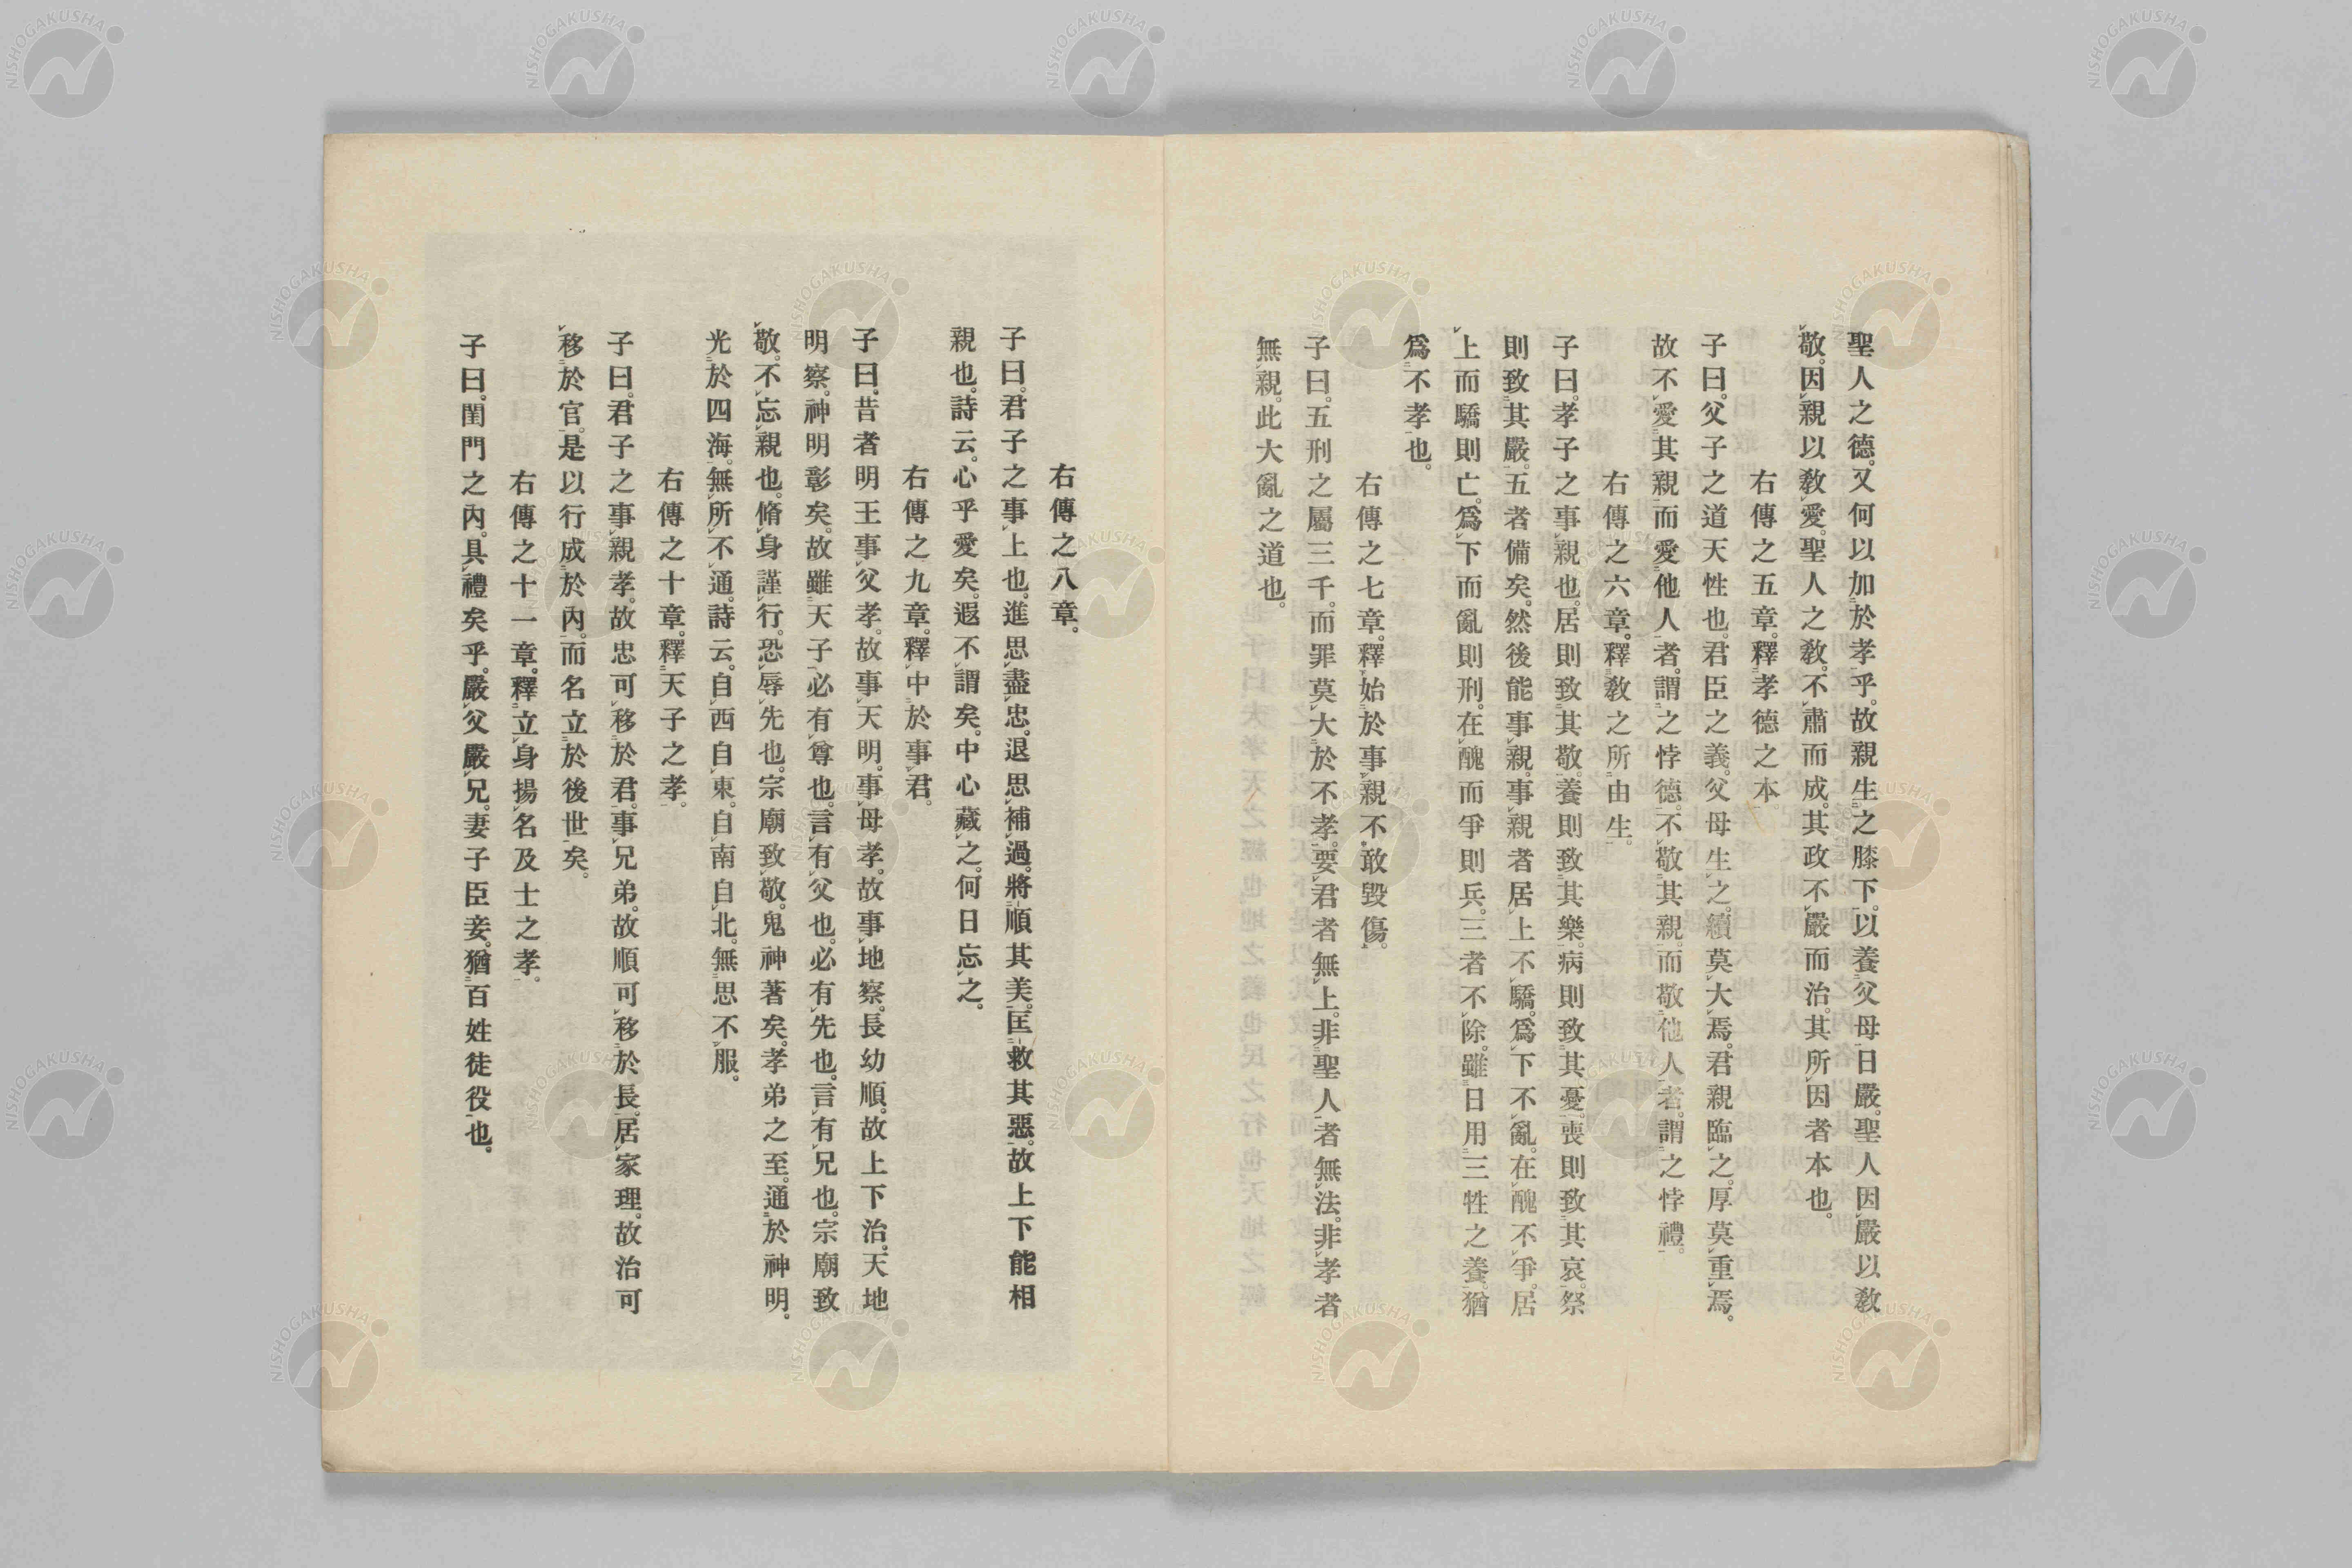 聖人之德。又何以加於孝乎。故親生之膝下。以養父母日嚴。聖人因嚴以敎
敬。因親以敎愛。聖人之敎。不肅而成。其政不嚴而治。其所因者本也。
右傳之五章。釋孝德之本
子曰。父子之道天性也。君臣之義。父母生之。續莫大焉。君親臨之。厚莫重焉。
故不愛其親而愛他人者。謂之悖德。不敬其親。而敬他人者。謂之悖禮。
右傳之六章。釋敎之所由生。
子曰。孝子之事親也。居則致其敬。養則致其樂。病則致其憂。喪則致其哀。祭
則致其嚴。五者備矣。然後能事親。事親者居上不驕。爲下不亂。在醜不爭。居
上而驕則亡。爲下而亂則刑。在醜而爭則兵。三者不除。雖日用三牲之養。猶
爲不孝也。
右傳之七章。釋始於事親不敢毀傷。
子曰。五刑之屬三千。而罪莫大於不孝。要君者無上。非聖人者無法。非孝者
無親。此大亂之道也。
右傳之八章。
子曰。君子之事上也。進思盡忠。退思補過。將順其美。匡救其惡。故上下能相
親也。詩云。心乎愛矣。遐不謂矣。中心藏之。何日忘之。
右傳之九章。釋中於事君。
子曰。昔者明王事父孝。故事天明。事母孝。故事地察。長幼順。故上下治。天地
明察。神明彰矣。故雖天子必有尊也。言有父也。必有先也。言有兄也。宗廟致
敬。不忘親也。脩身謹行。恐辱先也。宗廟致敬。鬼神著矣。孝弟之至。通於神明。
光於四海。無所不通。詩云。自西自東。自南自北。無思不服。
右傳之十章。釋天子之孝。
子曰。君子之事親孝。故忠可移於君。事兄弟。故順可移於長。居家理。故治可
移於官。是以行成於內。而名立於後世矣。
右傳之十一章。釋立身揚名及士之孝。
子曰。閨門之內。具禮矣乎。嚴父嚴兄。妻子臣妾。猶百姓徒役也。
NISHOGAKUSHA